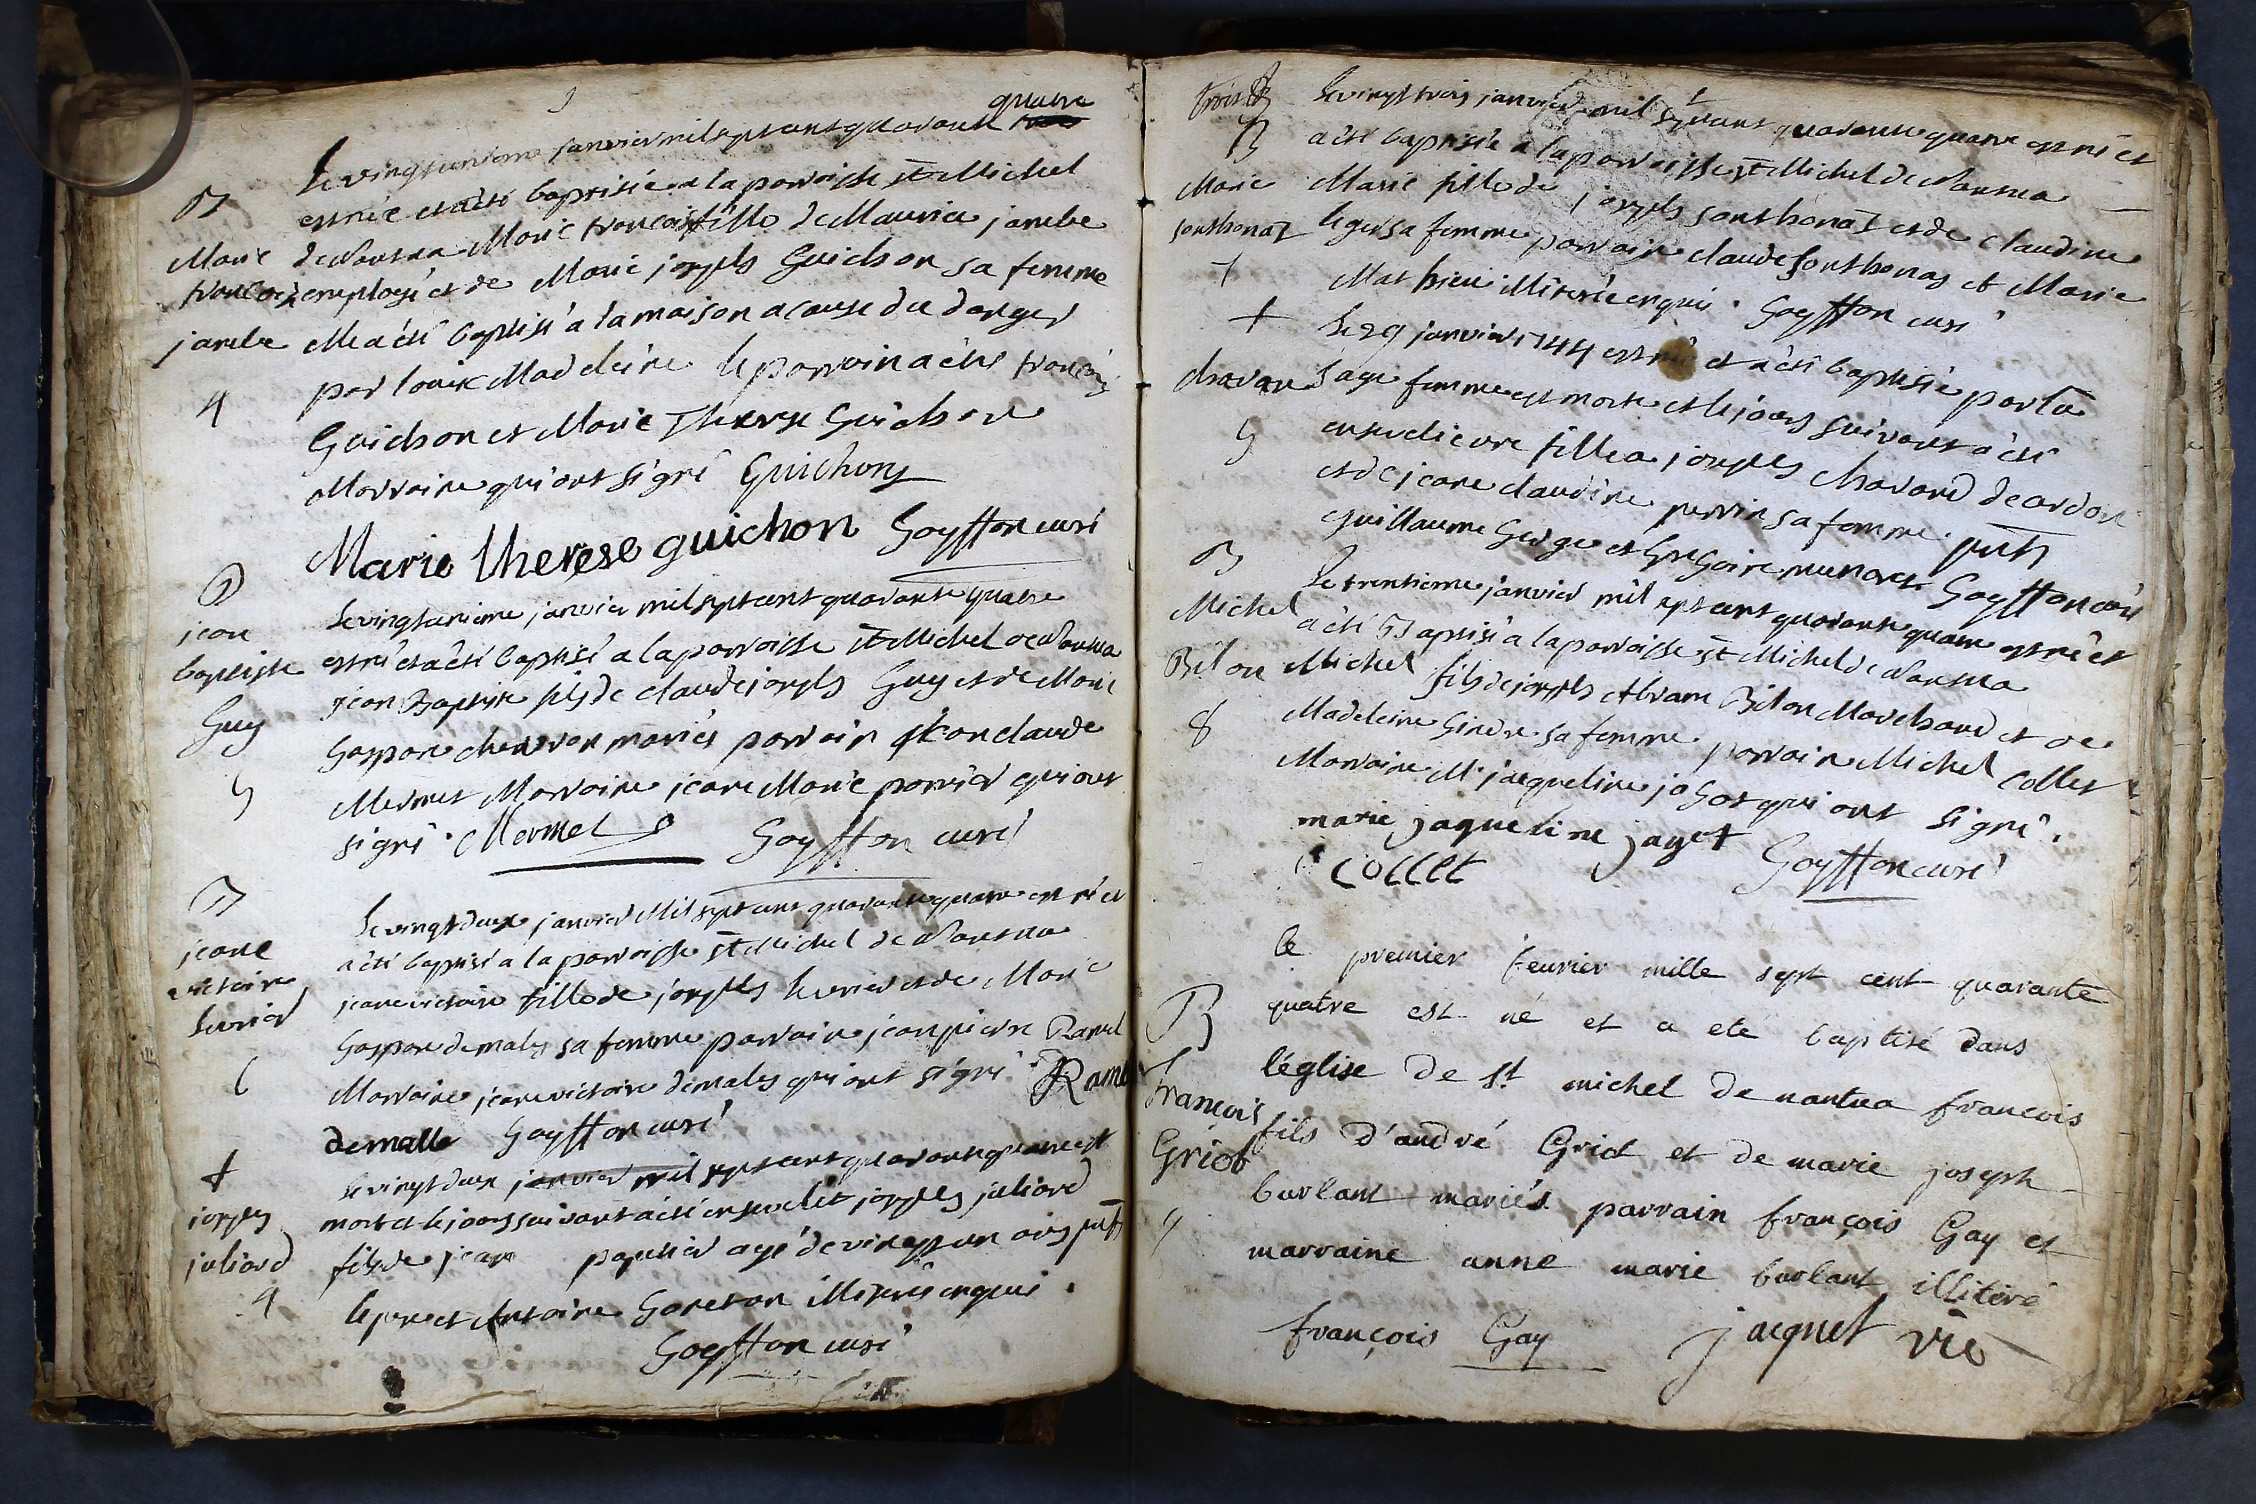 quatre
Le vingtunieme janvier mil sept cent quarante trois
B
est née et a été baptisée a la parroisse st Michel
Marie
de Nantua Marie françoise fille de Maurice jambe
françoise
employé et de Marie joseph Guichon sa femme
jambe
elle a été baptisé a la maison a cause du danger
4
par Madeleine le parrain a été françois
Guichon et Marie Therese Guichon
Marraine qui ont signé Guichon
Marie therese guichon Goyffon curé
B
Le vingtunieme janvier mil sept cent quarante quatre
jean
est né et a été baptisé a la parroisse st Michel de Nantua
baptiste
jean Baptiste fils de claude joseph Guy et de Marie
Guy
Gaspare mariés parrain jean claude
5
Mermet Marraine jeane Marie perrier qui ont
signé. Mermet Goyffon curé
B
Le vingt deux janvier Mil sept cent quarante quatre est né et
jeane
a été baptisé a la parroisse st Michel de Nantua
victoire
jeane victoire fille de joseph et de Marie
Gaspare demales sa femme parrain jean pierre Ramel
6
Marraine jeane victoire demales qui ont signé. Ramel
demalle Goyffon curé
+
Le vingt deux janvier mil sept cent quarante quatre est
joseph
mort et le jour suivant a été enseveli joseph juliard
juliard
fils de jean papetier agé de vingt un ans pnts
4
le pere et Antoine Goneton illiterés enquis.
Goyffon curé
trois B
Le vingt trois janvier mil sept cent quarante quatre est né et
B
a été baptisée a la parroisse st Michel de Nantua
Marie
Marie fille de joseph sonthonaz et de claudine
sonthonaz
leger sa femme parrain claude sonthonaz et Marie
+
Mathieu illiterée enquis. Goyffon curé
+
Le 29 janvier 1744 est né et a été baptisée par la
chavan
sage femme est morte et le jour suivant a été
5
ensevelie une fille a joseph chavand de ardon
et de jeane claudine perrin sa femme. pnts
guillaume George et Gregoire munaret Goyffon curé
B
Le trentieme janvier mil sept cent quarante quatre est né et
Michel
a été Baptisé a la parroisse st Michel de Nantua
Bilon
Michel fils de joseph Abram Bilon Marchand et de
8
Madeleine Gindre sa femme parrain Michel Collet
Marraine M. jacqueline jagot qui ont signé.
marie jaqueline jaget Goyffon curé
collet
le premier feurier mille sept cent quarante
B
quatre est né et a ete baptisé dans
léglise de st michel de nantua francois
françois
fils d'andré Griot et de marie joseph
Griot
burlant mariés parrain françois Gay et
marraine anne marie burlant illiteré
françois Gay jacquet vic